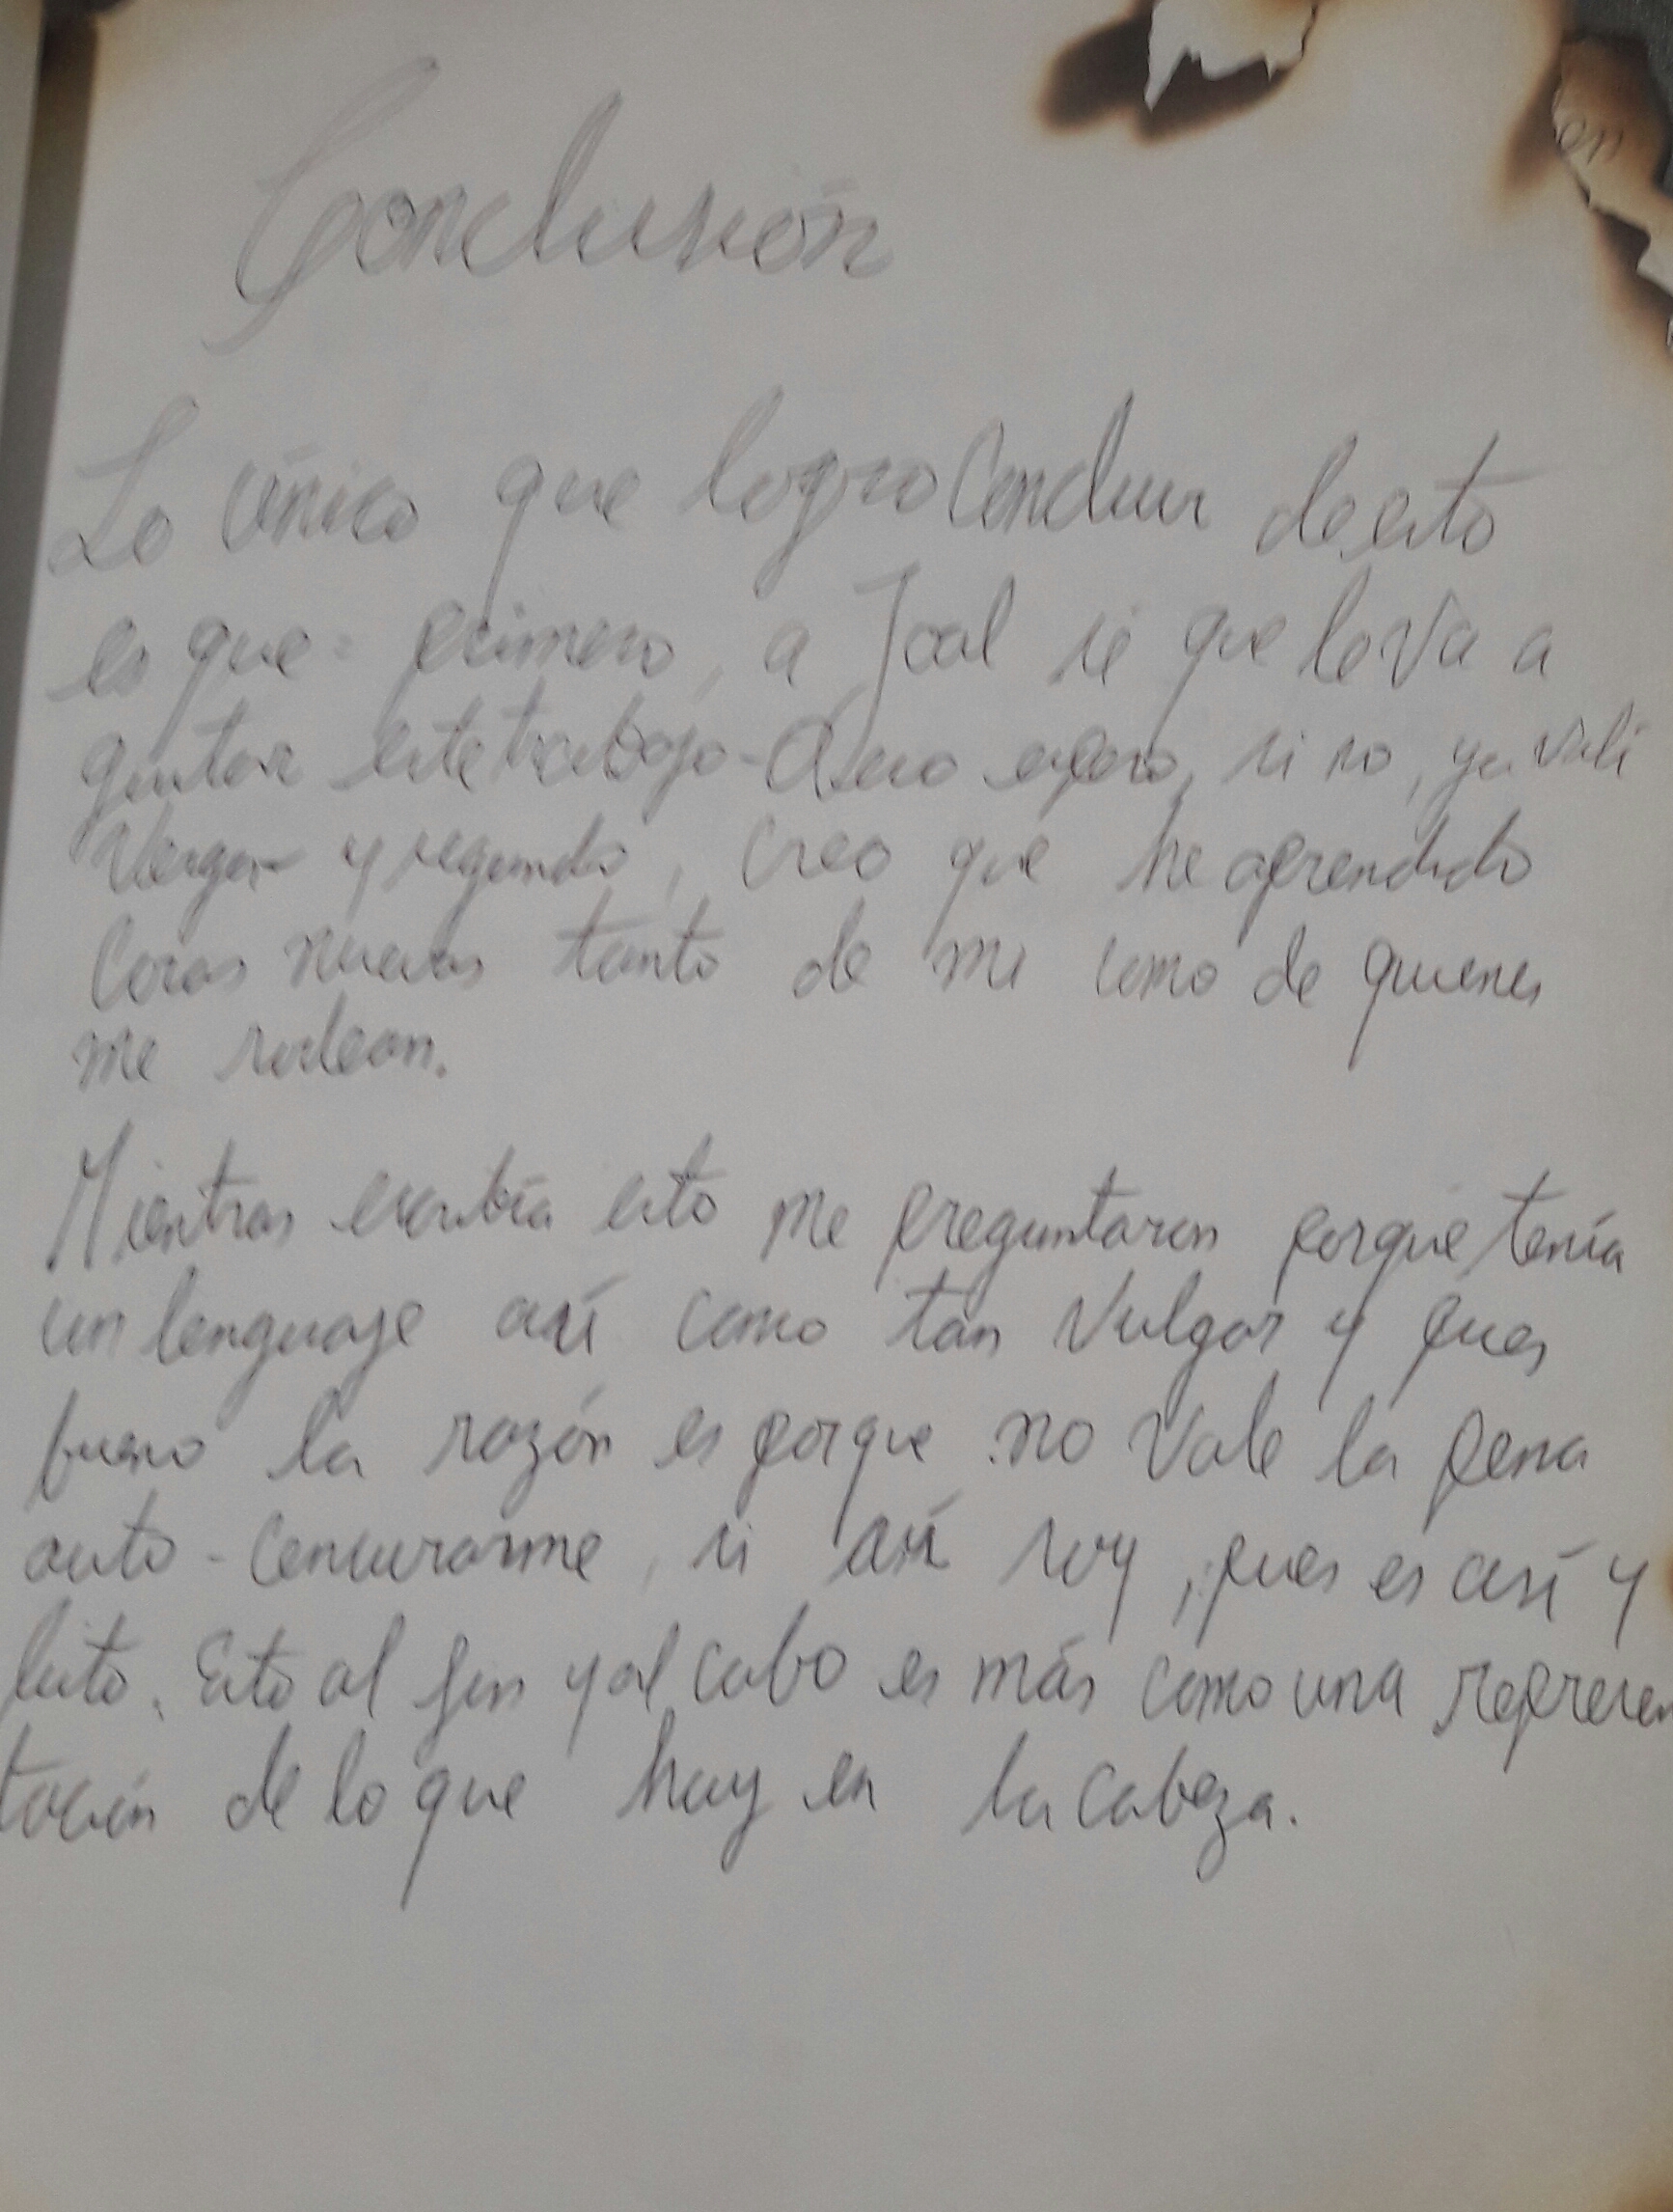 en
Conclusión
Lo único que logro concluir de esto
es que: primero, a Joal si que le va a
gustar este trabajo - eso espero, si no, ya valí
Verga- y segundo, creo que he aprendido
cosas nuevas tanto de mi como de quienes
me rodean.
Mientras escribía esto me preguntaron porque tenía
un lenguaje así como tan vulgar y pues
bueno la razón es porque no vale la pena
auto-censurarme, si así soy, pues es así y
listo. Esto al fin y al cabo es más como una represen
tación de lo que hay en la cabeza.